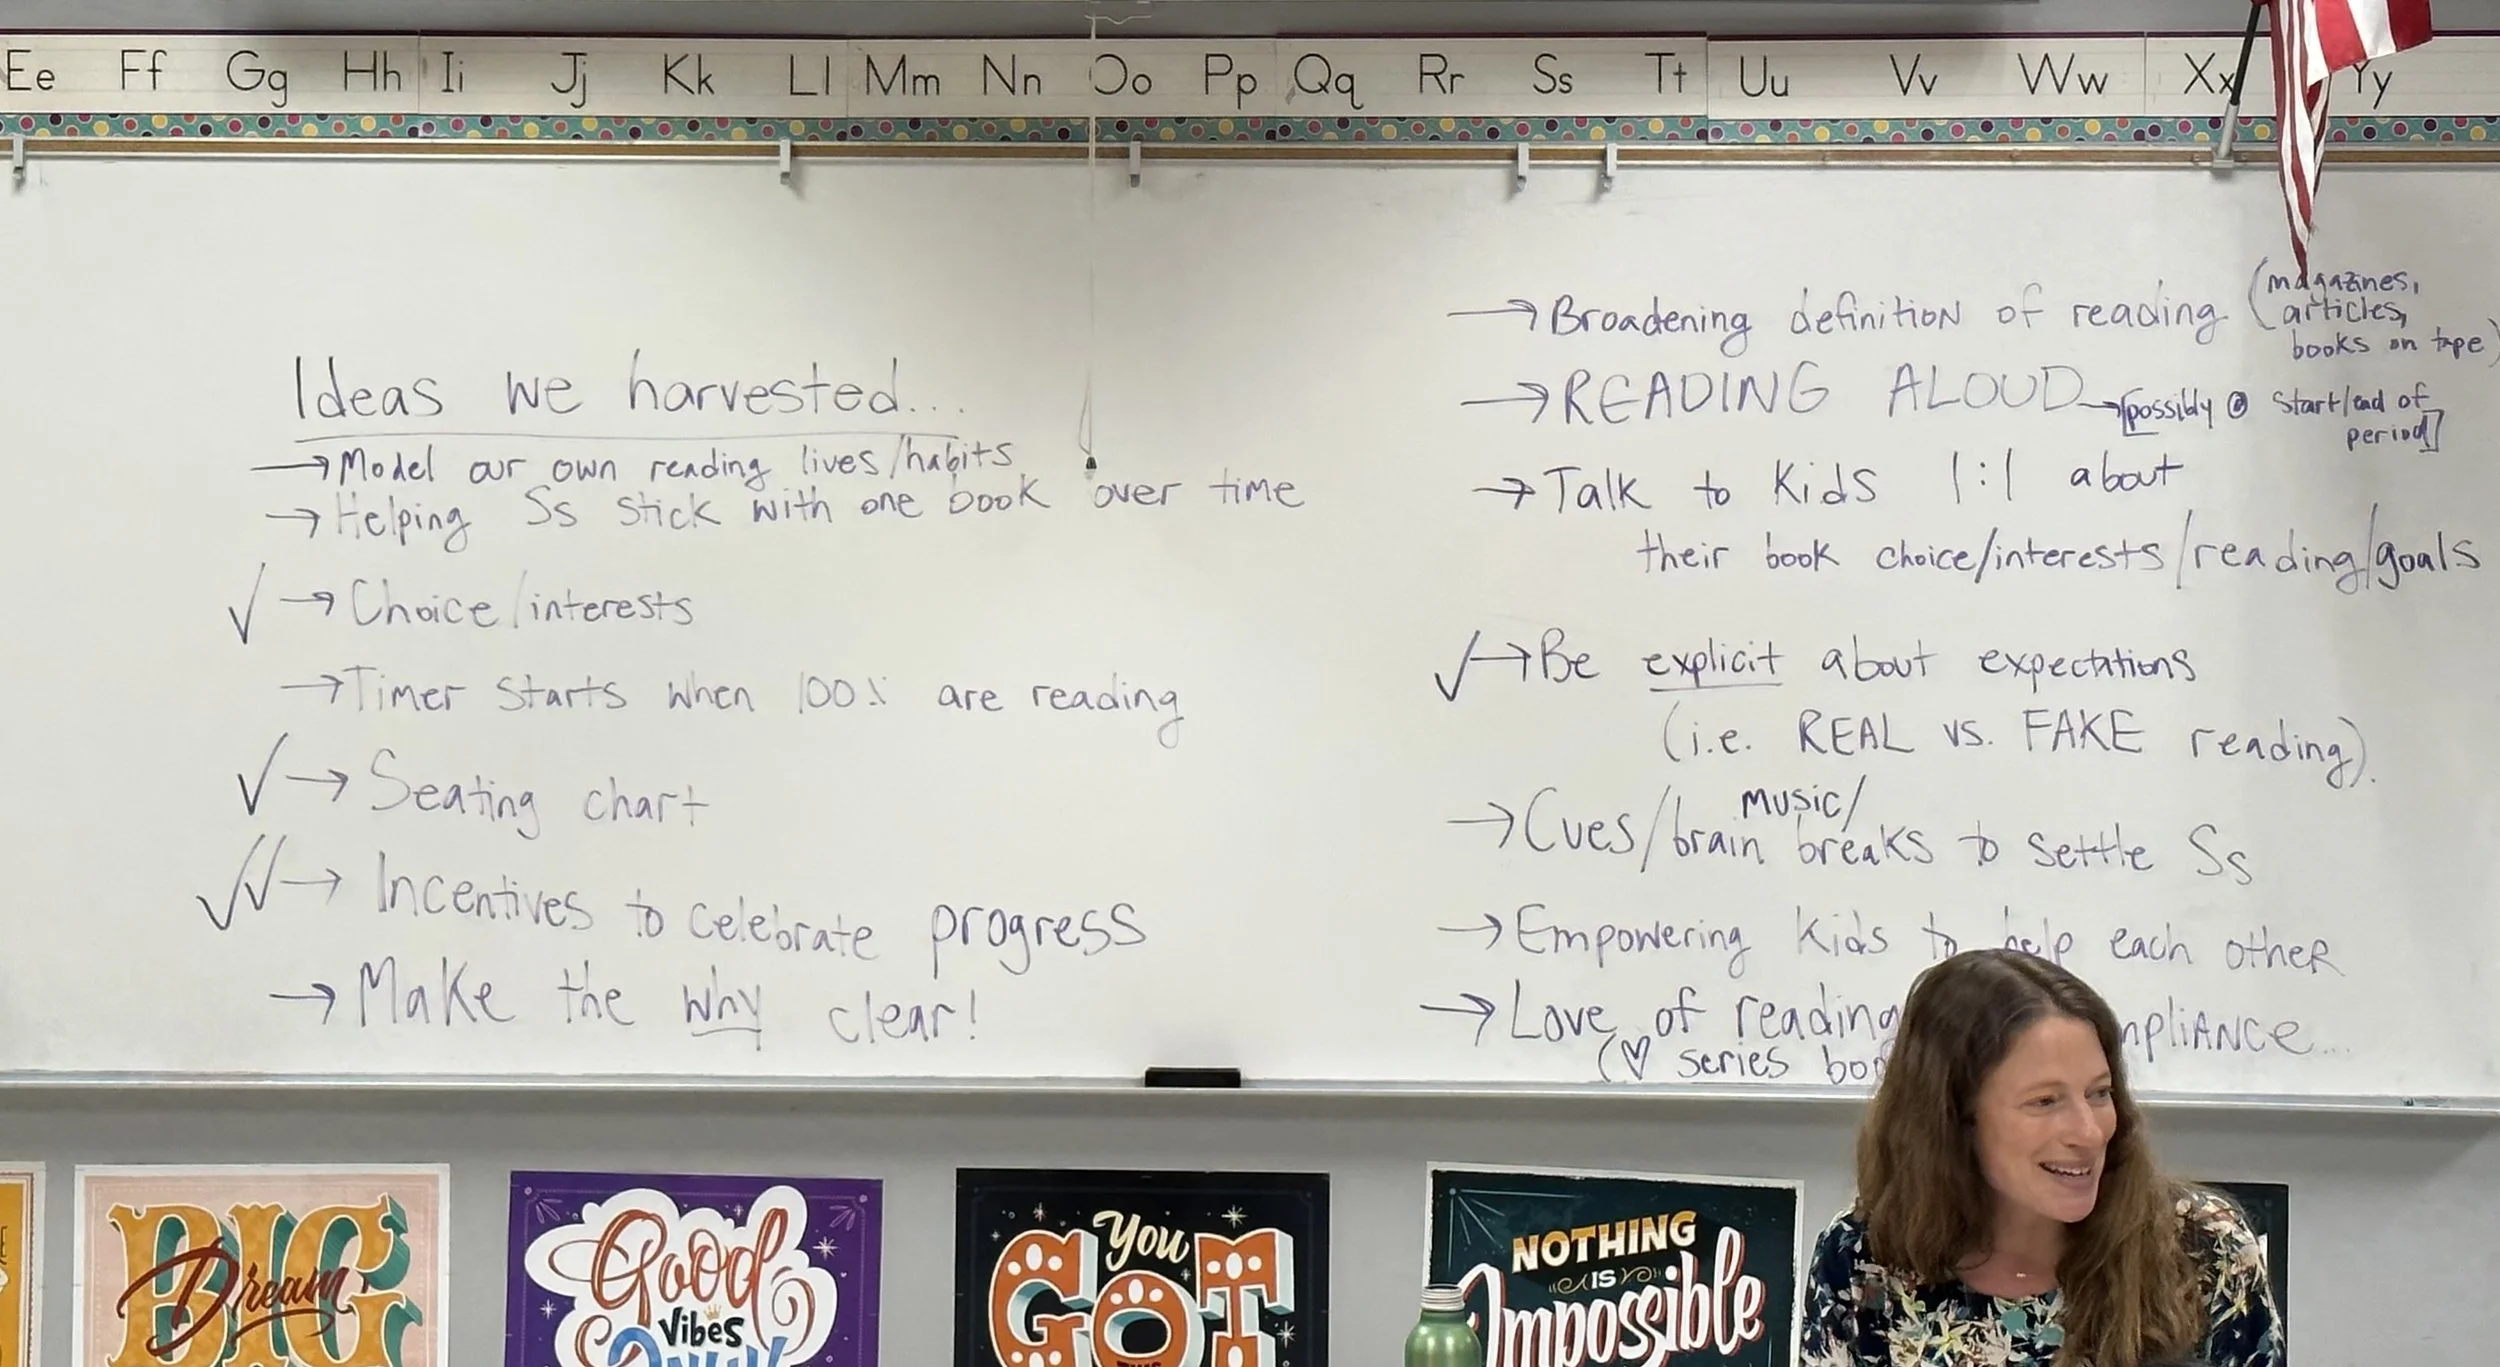 Ee Ff Gg Hh Ii Jj Kk Ll Mm Nn Oo Pp Qq Rr Ss Tt Uu Vv Ww Xx Yy
Ideas we harvested...
→ Model our own reading lives/habits
→ Helping Ss stick with one book over time
✓ → Choice/interests
→ Timer starts when 100% are reading
✓ → Seating chart
✓✓ → Incentives to celebrate progress
→ Make the why clear!
→ Broadening definition of reading (magazines,
articles,
books on tape)
→ READING ALOUD → [possibly @ start/end of
period]
→ Talk to kids 1:1 about
their book choice/interests/reading/goals
✓ → Be explicit about expectations
(i.e. REAL vs. FAKE reading).
→ Cues/music/
brain breaks to settle Ss
→ Empowering kids to help each other
→ Love of reading
(♡ series
BIG
Dream
Good
Vibes
ONLY
You
GOT
THIS
NOTHING
IS
Impossible